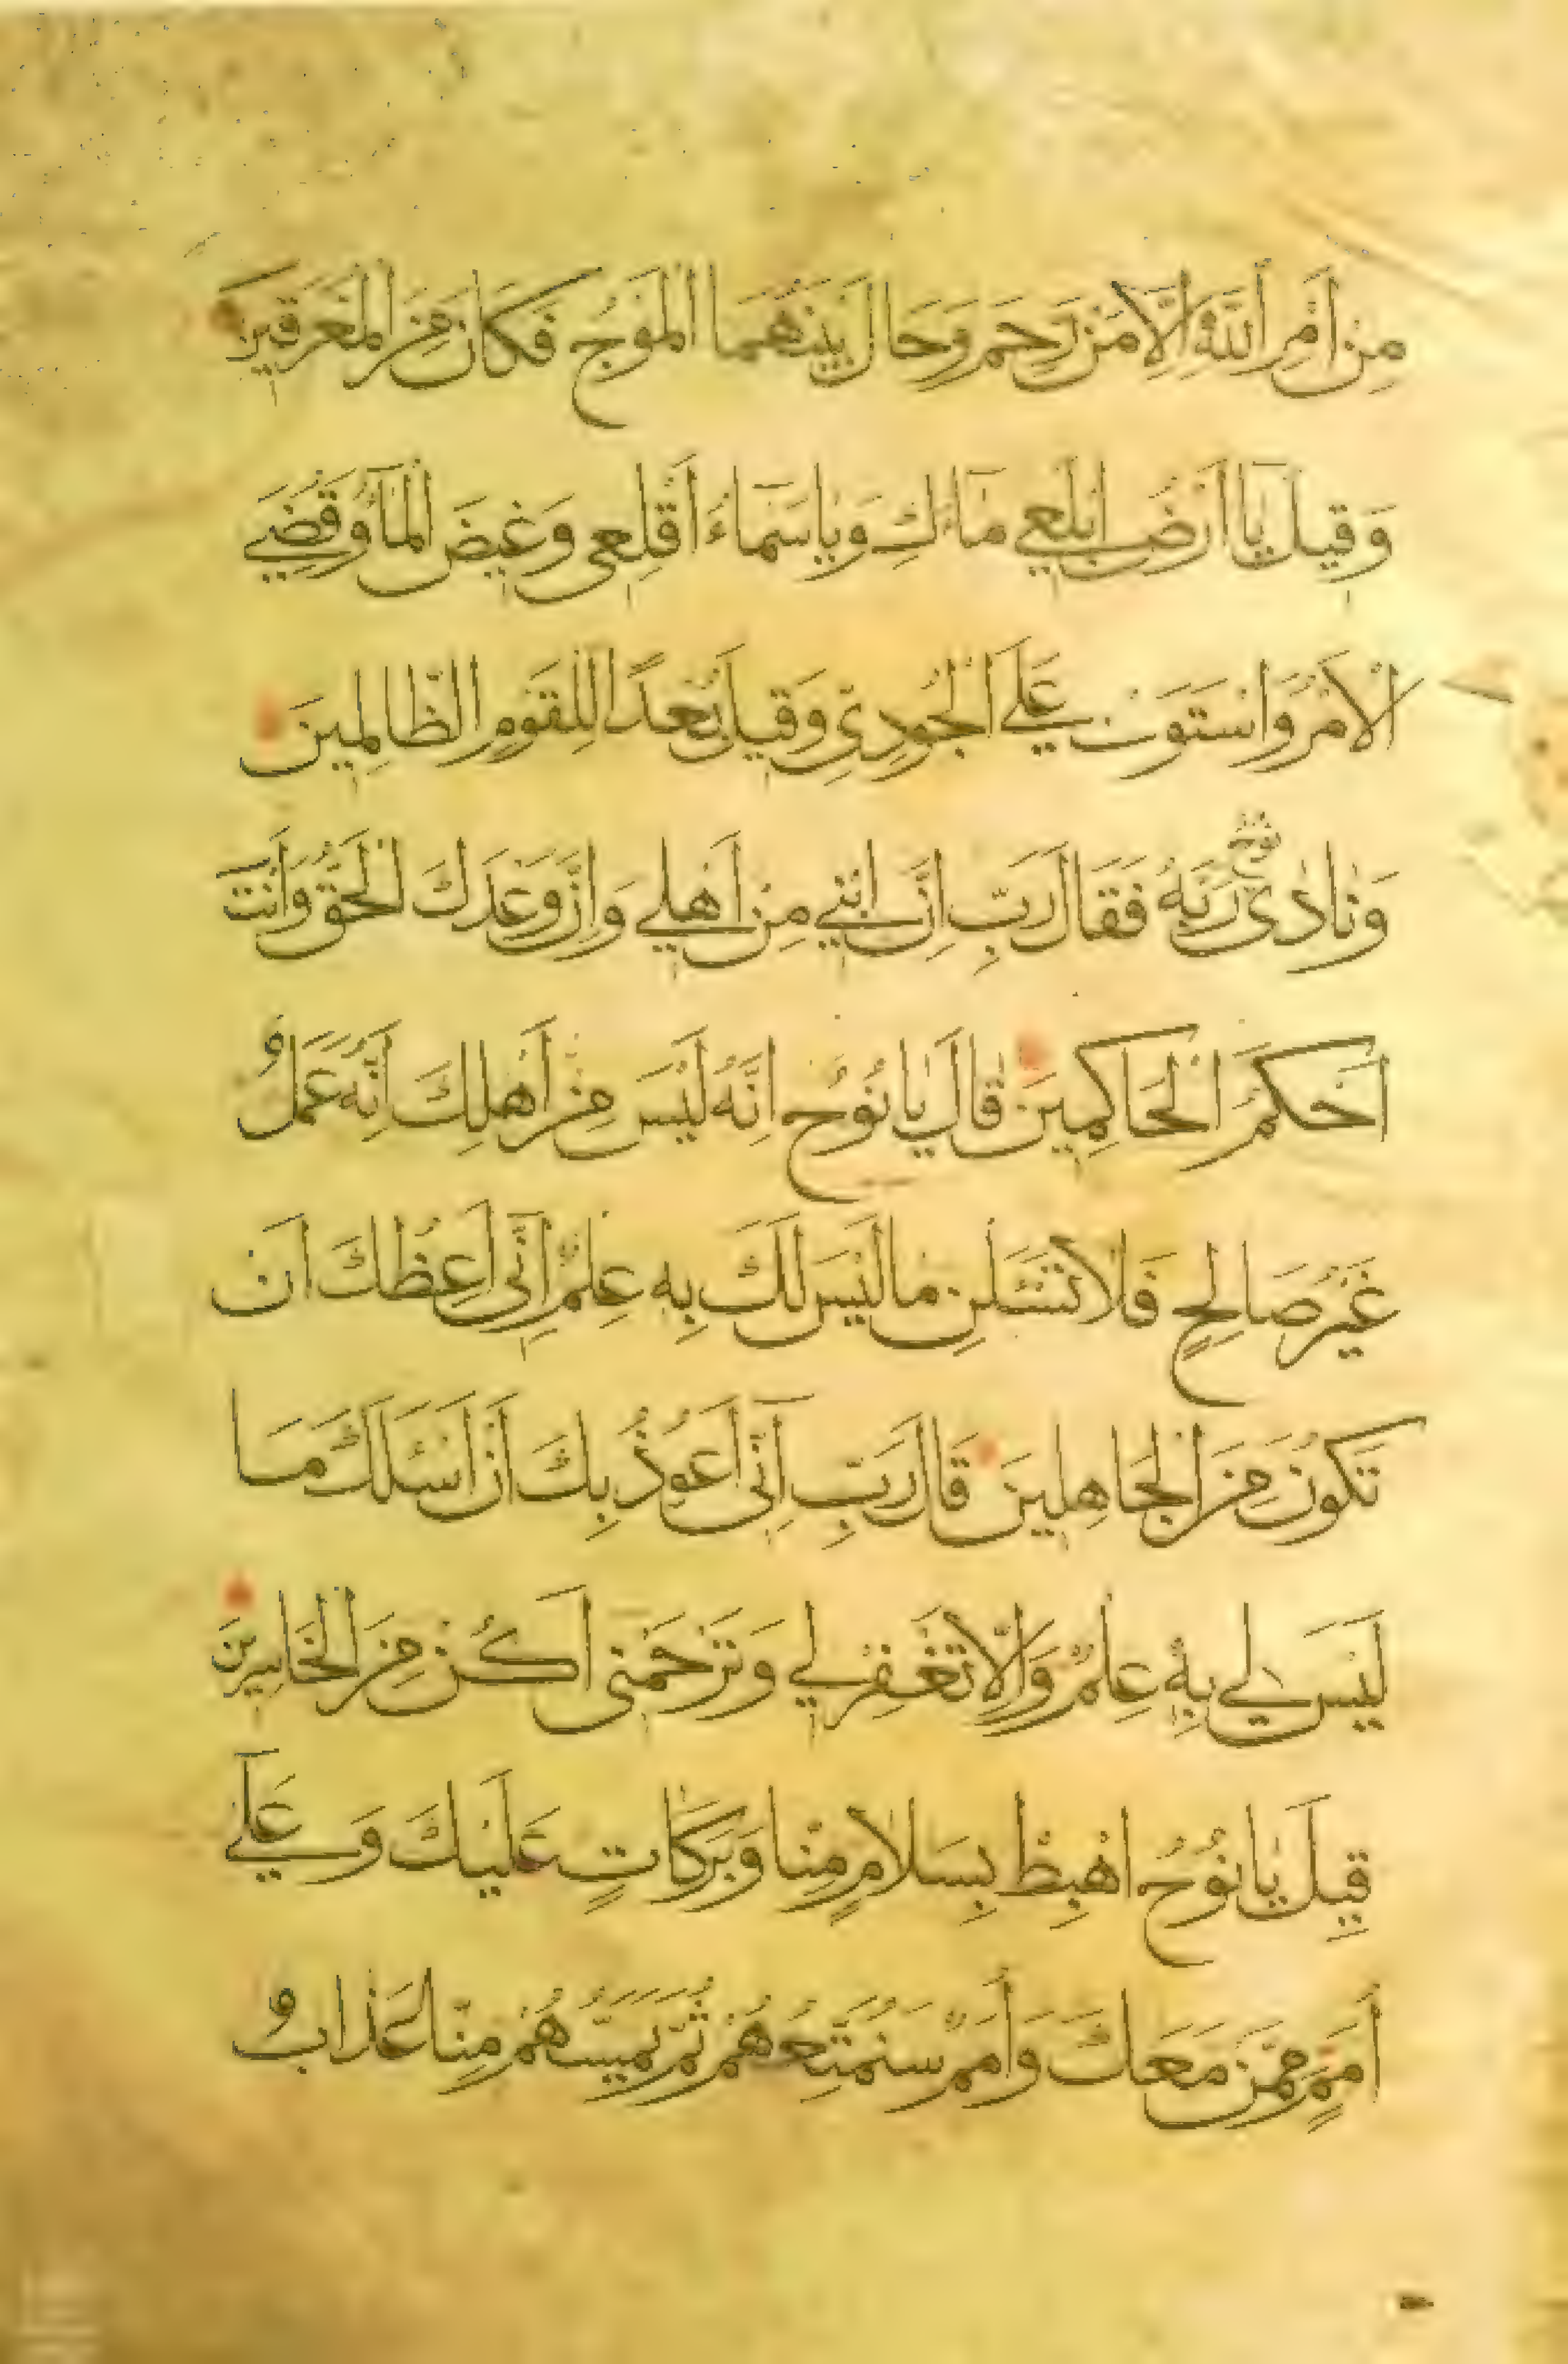 مِنْ أَمْرِ اللَّهِ إِلَّا مَنْ رَحِمَ وَحَالَ بَيْنَهُمَا الْمَوْجُ فَكَانَ مِنَ الْمُغْرَقِينَ
وَقِيلَ يَا أَرْضُ ابْلَعِي مَاءَكِ وَيَا سَمَاءُ أَقْلِعِي وَغِيضَ الْمَاءُ وَقُضِيَ
الْأَمْرُ وَاسْتَوَتْ عَلَى الْجُودِيِّ وَقِيلَ بُعْدًا لِلْقَوْمِ الظَّالِمِينَ
وَنَادَى نُوحٌ رَبَّهُ فَقَالَ رَبِّ إِنَّ ابْنِي مِنْ أَهْلِي وَإِنَّ وَعْدَكَ الْحَقُّ وَأَنْتَ
أَحْكَمُ الْحَاكِمِينَ قَالَ يَا نُوحُ إِنَّهُ لَيْسَ مِنْ أَهْلِكَ إِنَّهُ عَمَلٌ
غَيْرُ صَالِحٍ فَلَا تَسْئَلْنِ مَا لَيْسَ لَكَ بِهِ عِلْمٌ إِنِّي أَعِظُكَ أَنْ
تَكُونَ مِنَ الْجَاهِلِينَ قَالَ رَبِّ إِنِّي أَعُوذُ بِكَ أَنْ أَسْئَلَكَ مَا
لَيْسَ لِي بِهِ عِلْمٌ وَإِلَّا تَغْفِرْ لِي وَتَرْحَمْنِي أَكُنْ مِنَ الْخَاسِرِينَ
قِيلَ يَا نُوحُ اهْبِطْ بِسَلَامٍ مِنَّا وَبَرَكَاتٍ عَلَيْكَ وَعَلَى
أُمَمٍ مِمَّنْ مَعَكَ وَأُمَمٌ سَنُمَتِّعُهُمْ ثُمَّ يَمَسُّهُمْ مِنَّا عَذَابٌ